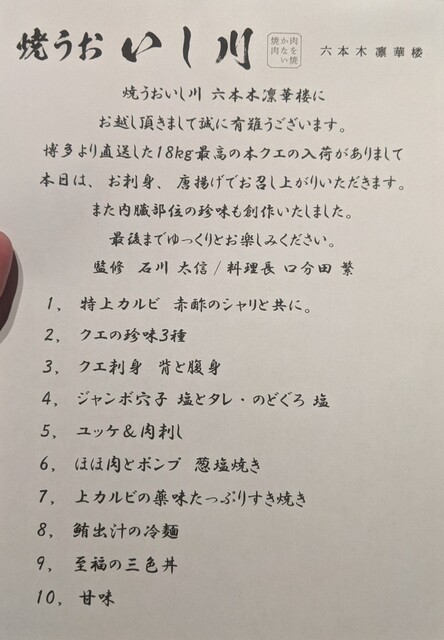 焼うおいし川 肉を焼かない焼肉 六本木 凛華楼
焼うおいし川 六本木凛華楼に
お越し頂きまして誠に有難うございます。
博多より直送した18kg最高の本クエの入荷がありまして
本日は、お刺身、唐揚げでお召し上がりいただきます。
また内臓部位の珍味も創作いたしました。
最後までゆっくりとお楽しみください。
監修 石川 太信 / 料理長 口分田 繁
1, 特上カルビ 赤酢のシャリと共に。
2, クエの珍味3種
3, クエ刺身 背と腹身
4, ジャンボ穴子 塩とタレ・のどぐろ 塩
5, ユッケ&肉刺し
6, ほほ肉とポンプ 葱塩焼き
7, 上カルビの薬味たっぷりすき焼き
8, 鮪出汁の冷麺
9, 至福の三色丼
10, 甘味